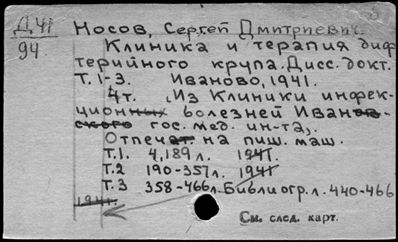 Д.41 Носов, Сергей Дмитриевич.
94. Клиника и терапия диф
терийного крупа. Дисс. докт.
Т. 1-3. Иваново, 1941.
4т. (Из Клиники инфек-
ционных болезней Иванов-
ского гос. мед. ин-та).
Отпечат. на пиш. маш.
Т.1. 4,189 л. 1941.
Т.2 190-357л. 1941
Т.3 358-466л. Библиогр. л. 440-466
1941.
См. след. карт.